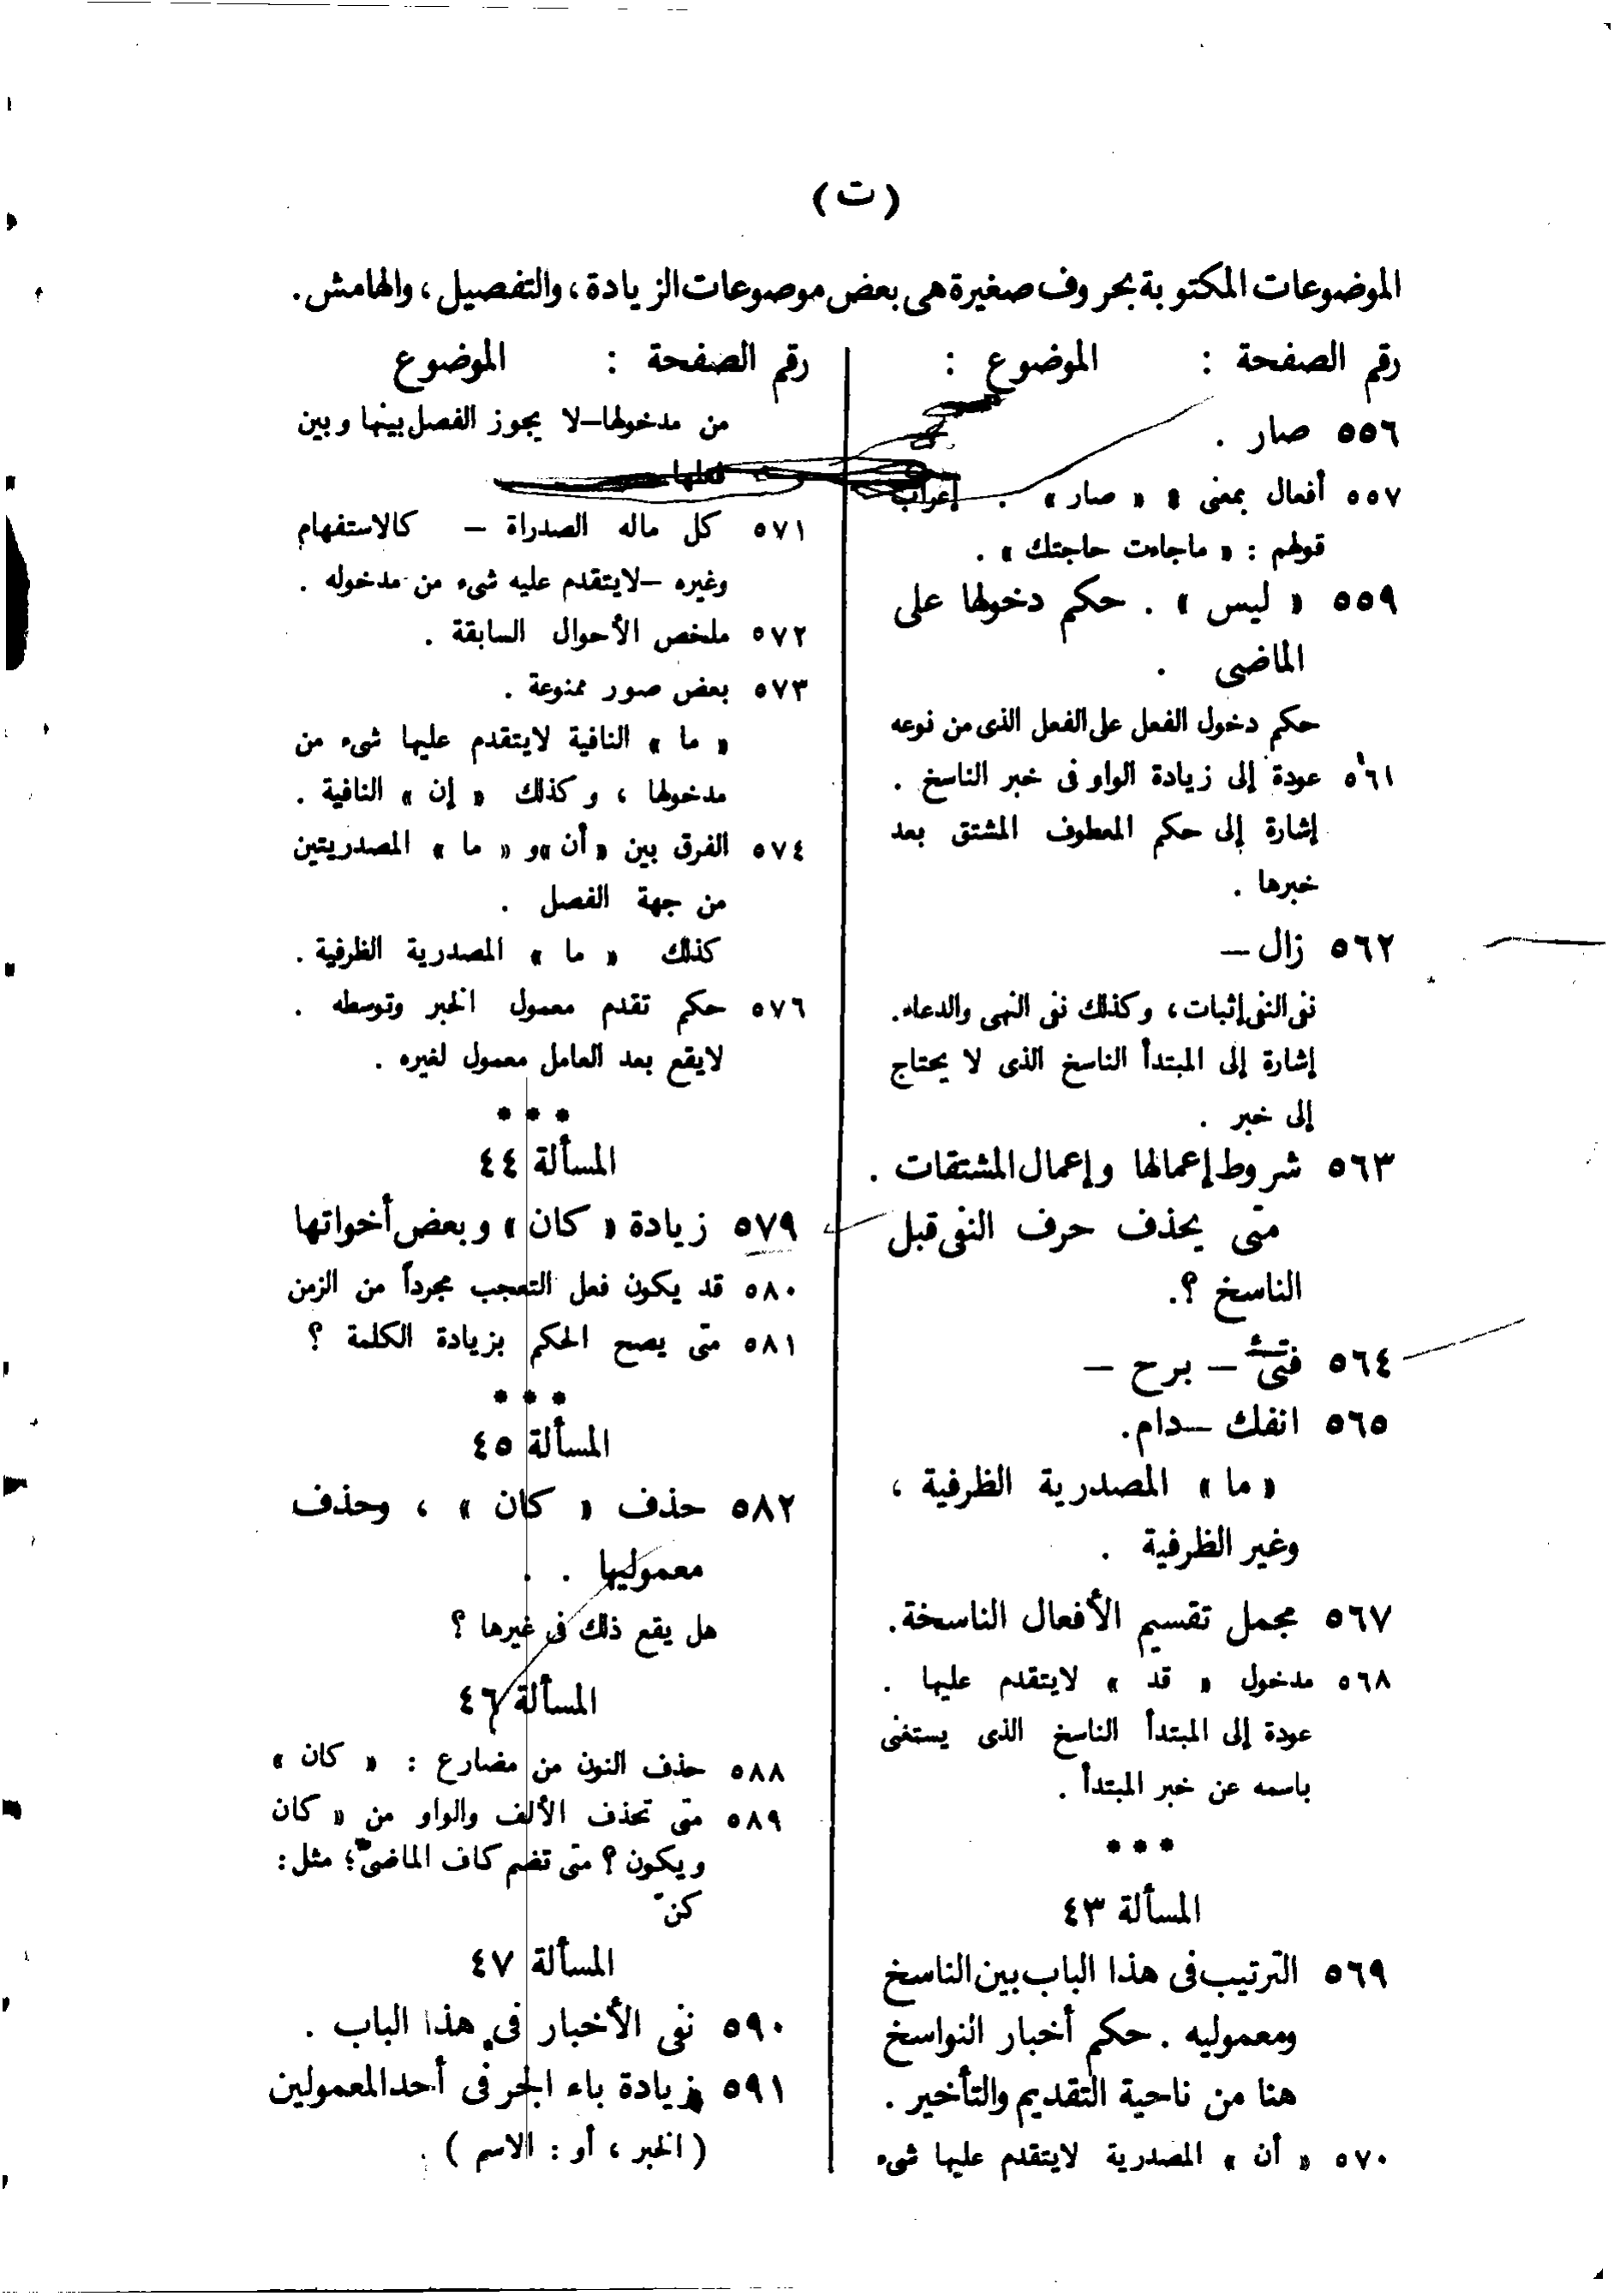 (ت)
الموضوعات المكتوبة بحروف صغيرة هى بعض موصوعات الزيادة، والتفصيل، والهامش.
رقم الصفحة : الموضوع :
٥٥٦ صار .
٥٥٧ أفعال بمعنى : « صار » . إعراب
قولهم : « ماجاءت حاجتك » .
٥٥٩ « ليس » . حكم دخولها على
الماضى .
حكم دخول الفعل على الفعل الذى من نوعه
٥٦١ عودة إلى زيادة الواو فى خبر الناسخ .
إشارة إلى حكم المعطوف المشتق بعد
خبرها .
٥٦٢ زال –
نفى النفى إثبات، وكذلك نفى النهى والدعاء.
إشارة إلى المبتدأ الناسخ الذى لا يحتاج
إلى خبر .
٥٦٣ شروط إعمالها وإعمال المشتقات .
متى يحذف حرف النفى قبل
الناسخ ؟.
٥٦٤ فتئ – برح –
٥٦٥ انفك – دام.
« ما » المصدرية الظرفية ،
وغير الظرفية .
٥٦٧ مجمل تقسيم الأفعال الناسخة.
٥٦٨ مدخول « قد » لايتقدم عليها .
عودة إلى المبتدأ الناسخ الذى يستغنى
باسمه عن خبر المبتدأ .
* * *
المسألة ٤٣
٥٦٩ الترتيب فى هذا الباب بين الناسخ
ومعموليه . حكم أخبار النواسخ
هنا من ناحية التقديم والتأخير .
٥٧٠ « أن » المصدرية لايتقدم عليها شىء
رقم الصفحة : الموضوع
من مدخولها – لا يجوز الفصل بينها وبين
فعلها
٥٧١ كل ماله الصدراة – كالاستفهام
وغيره – لايتقدم عليه شىء من مدخوله .
٥٧٢ ملخص الأحوال السابقة .
٥٧٣ بعض صور ممنوعة .
« ما » النافية لايتقدم عليها شىء من
مدخولها ، وكذلك « إن » النافية .
٥٧٤ الفرق بين « أن » و « ما » المصدريتين
من جهة الفصل .
كذلك « ما » المصدرية الظرفية .
٥٧٦ حكم تقدم معمول الخبر وتوسطه .
لايقع بعد العامل معمول لغيره .
* * *
المسألة ٤٤
٥٧٩ زيادة « كان » وبعض أخواتها
٥٨٠ قد يكون فعل التعجب مجرداً من الزمن
٥٨١ متى يصح الحكم بزيادة الكلمة ؟
* * *
المسألة ٤٥
٥٨٢ حذف « كان » ، وحذف
معموليها . .
هل يقع ذلك فى غيرها ؟
المسألة ٤٦
٥٨٨ حذف النون من مضارع : « كان »
٥٨٩ متى تحذف الألف والواو من « كان
ويكون ؟ متى تضم كاف الماضى؛ مثل :
كنّ
المسألة ٤٧
٥٩٠ نفى الأخبار فى هذا الباب .
٥٩١ زيادة باء الجر فى أحد المعمولين
( الخبر ، أو : الاسم ) .